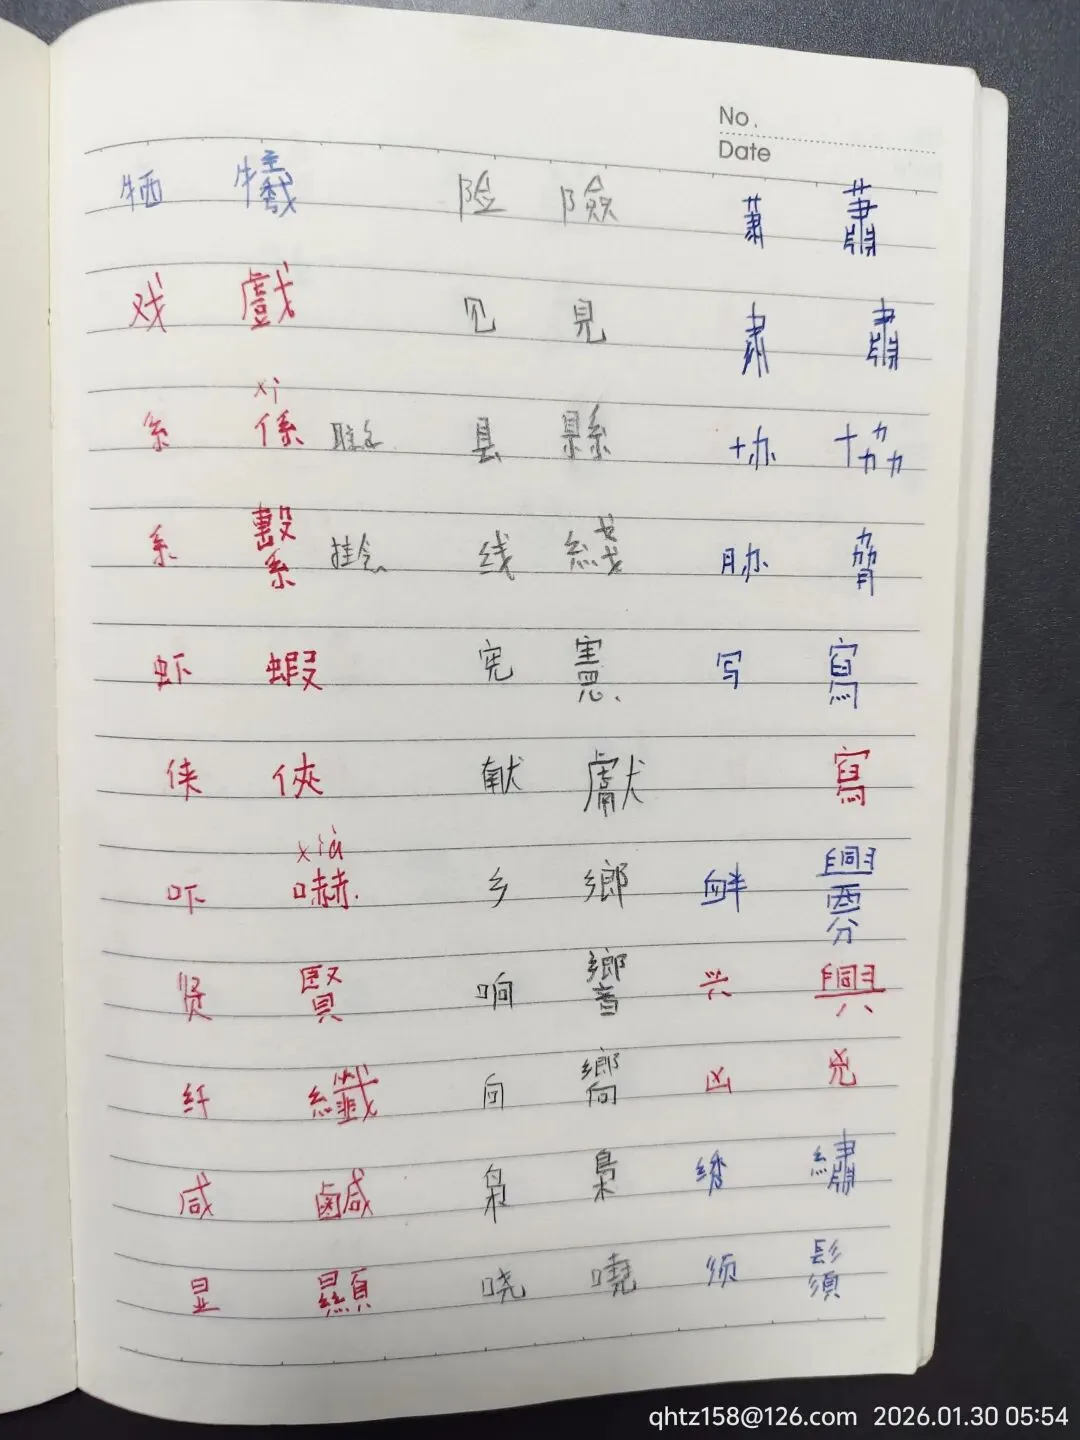 No.
Date
牺 犧 险 險 萧 蕭
戏 戲 见 見 肃 肅
xì
系 係 联系 县 縣 协 協
系 繫 挂念 线 綫 胁 脅
虾 蝦 宪 憲 写 寫
侠 俠 献 獻 寫
xià
吓 嚇 乡 鄉 衅 釁
贤 賢 响 響 兴 興
纤 纖 向 嚮 凶 兇
咸 鹹 枭 梟 绣 繡
显 顯 哓 嘵 须 鬚
qhtz158@126.com 2026.01.30 05:54